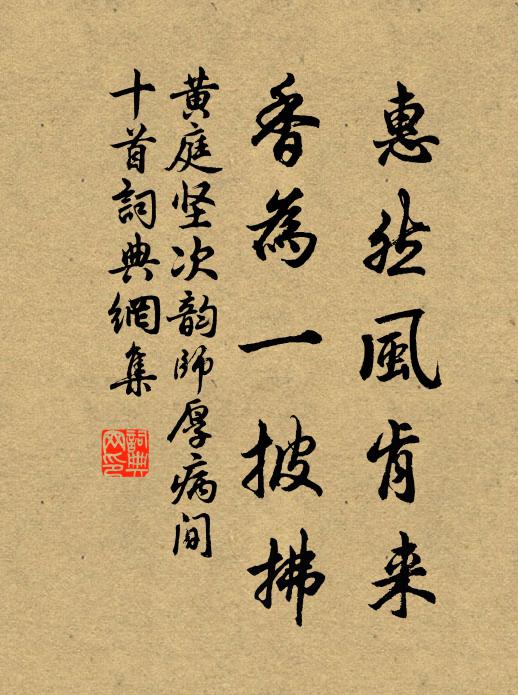 惠然風肯来
香為一披拂
黄庭坚次韵師厚病间
十首詞典網集
詞典網印